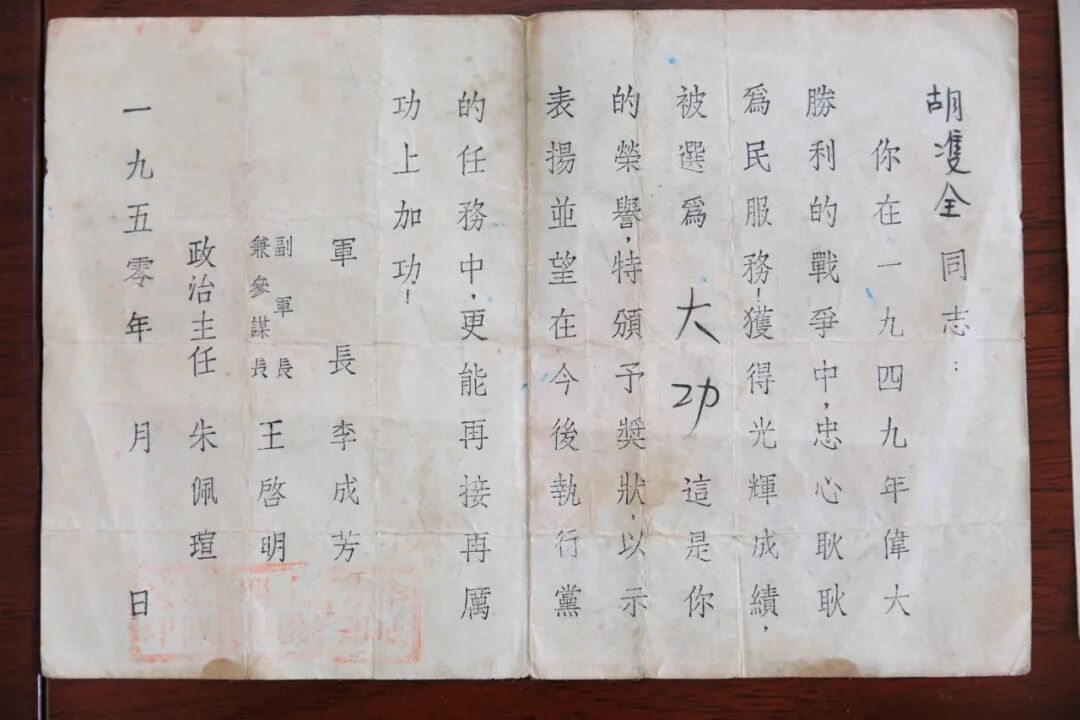 胡隻全同志：
你在一九四九年偉大
勝利的戰爭中，忠心耿耿
爲民服務！獲得光輝成績，
被選爲大功這是你
的榮譽，特頒予獎狀，以示
表揚並望在今後執行黨
的任務中，更能再接再厲
功上加功！
軍長李成芳
副軍長
兼參謀長
王啓明
政治主任朱佩瑄
一九五零年月日